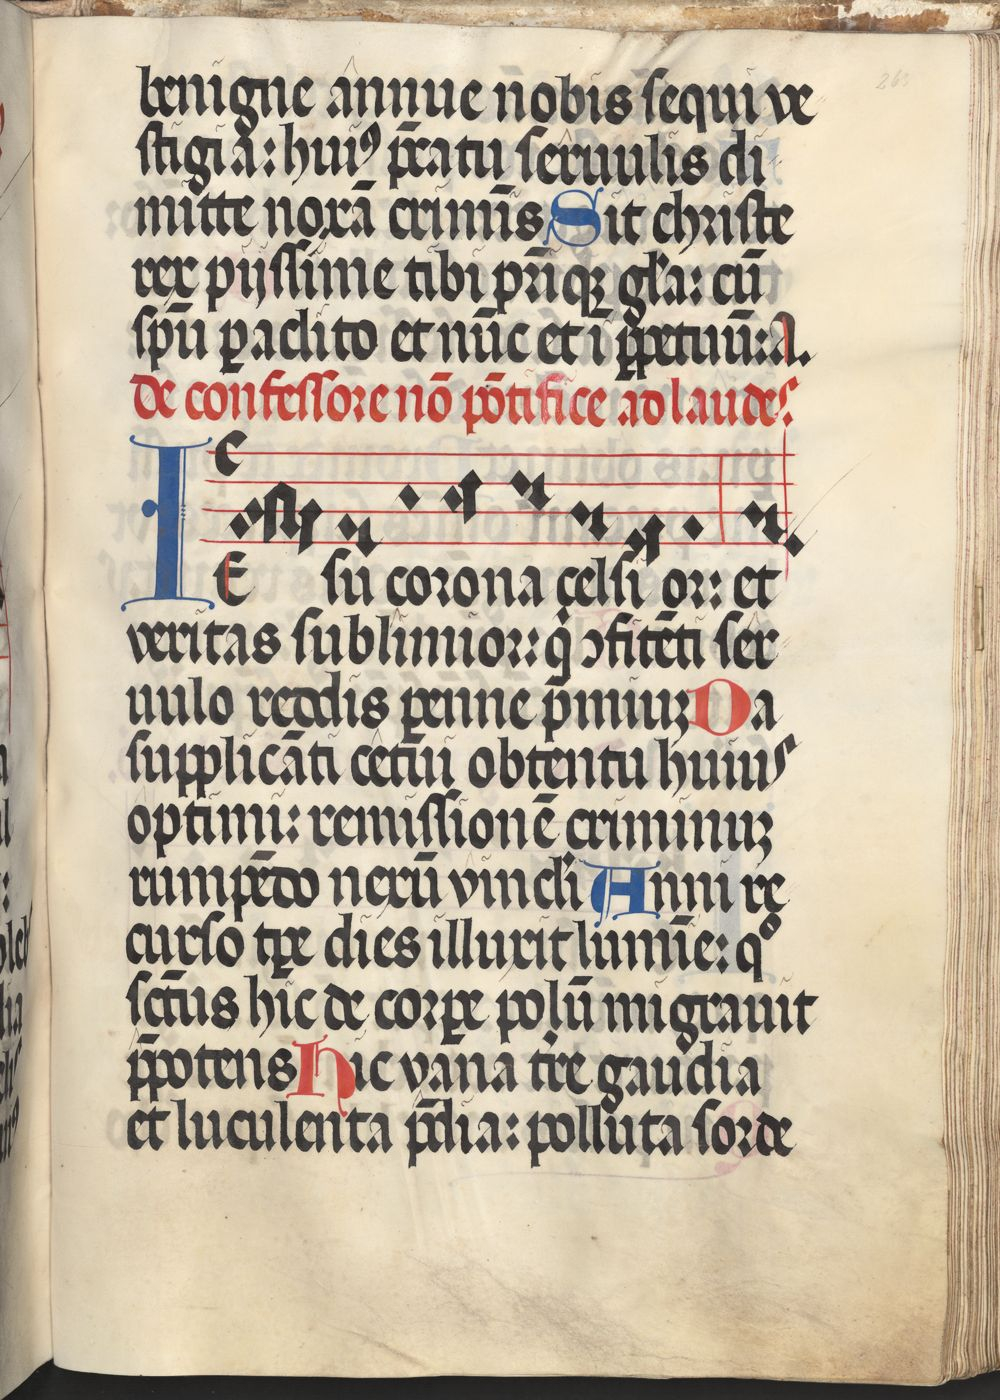 benigne annue nobis sequi ve
stigia: huiꝰ p̄catu seruulis di
mitte noxā crimīs Sit christe
rex pijssime tibi pr̄iqꝫ gl̄a: cū
sp̄u ꝑaclito et nūc et ī ꝑpetuū: A.
de confessore nō pōtifice ad laudes
IE su corona celsi or: et
veritas sublimior: q̄ ꝯfitēti ser
uulo reddis ꝑenne p̄miuꝫ Da
supplicāti cetūi obtentu huius
optimi: remissionē criminuꝫ
rumpēdo nexū vincli Anni re
curso tꝑe dies illuxit lumīe: qͦ
sctūs hic de corꝑe polū migrauit
p̄potens Hic vana tr̄e gaudia
et luculenta p̄dia: polluta sorde